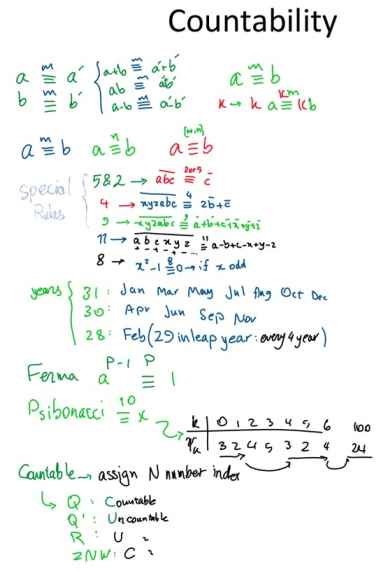 Countability
a ≡ᵐ a' { a+b ≡ᵐ a'+b'
b ≡ᵐ b' ab ≡ᵐ a'b'
a-b ≡ᵐ a'-b'
a ≡ᵐ b
k → k a ≡ᵏᵐ kb
a ≡ᵐ b a ≡ⁿ b a ≡^[m,n] b
Special Rules
582 → abc ≡^2or5 c
4 → xyzabc ≡⁴ 2b+c
9 → xyzabc ≡⁹ a+b+c+x+y+z
11 → abcxyz ≡¹¹ a-b+c-x+y-z
+ - + - + - ...
8 → x²-1 ≡⁸ 0 → if x odd
years { 31: Jan Mar May Jul Aug Oct Dec
30: Apr Jun Sep Nov
28: Feb (29 in leap year: every 4 year)
Ferma a^P-1 ≡^P 1
Psibonacci ≡¹⁰ x
k | 0 1 2 3 4 5 6 100
3 2 4 5 3 2 4 24
Countable → assign N number index
Q: Countable
Q': Uncountable
R: U "
2NW: C "